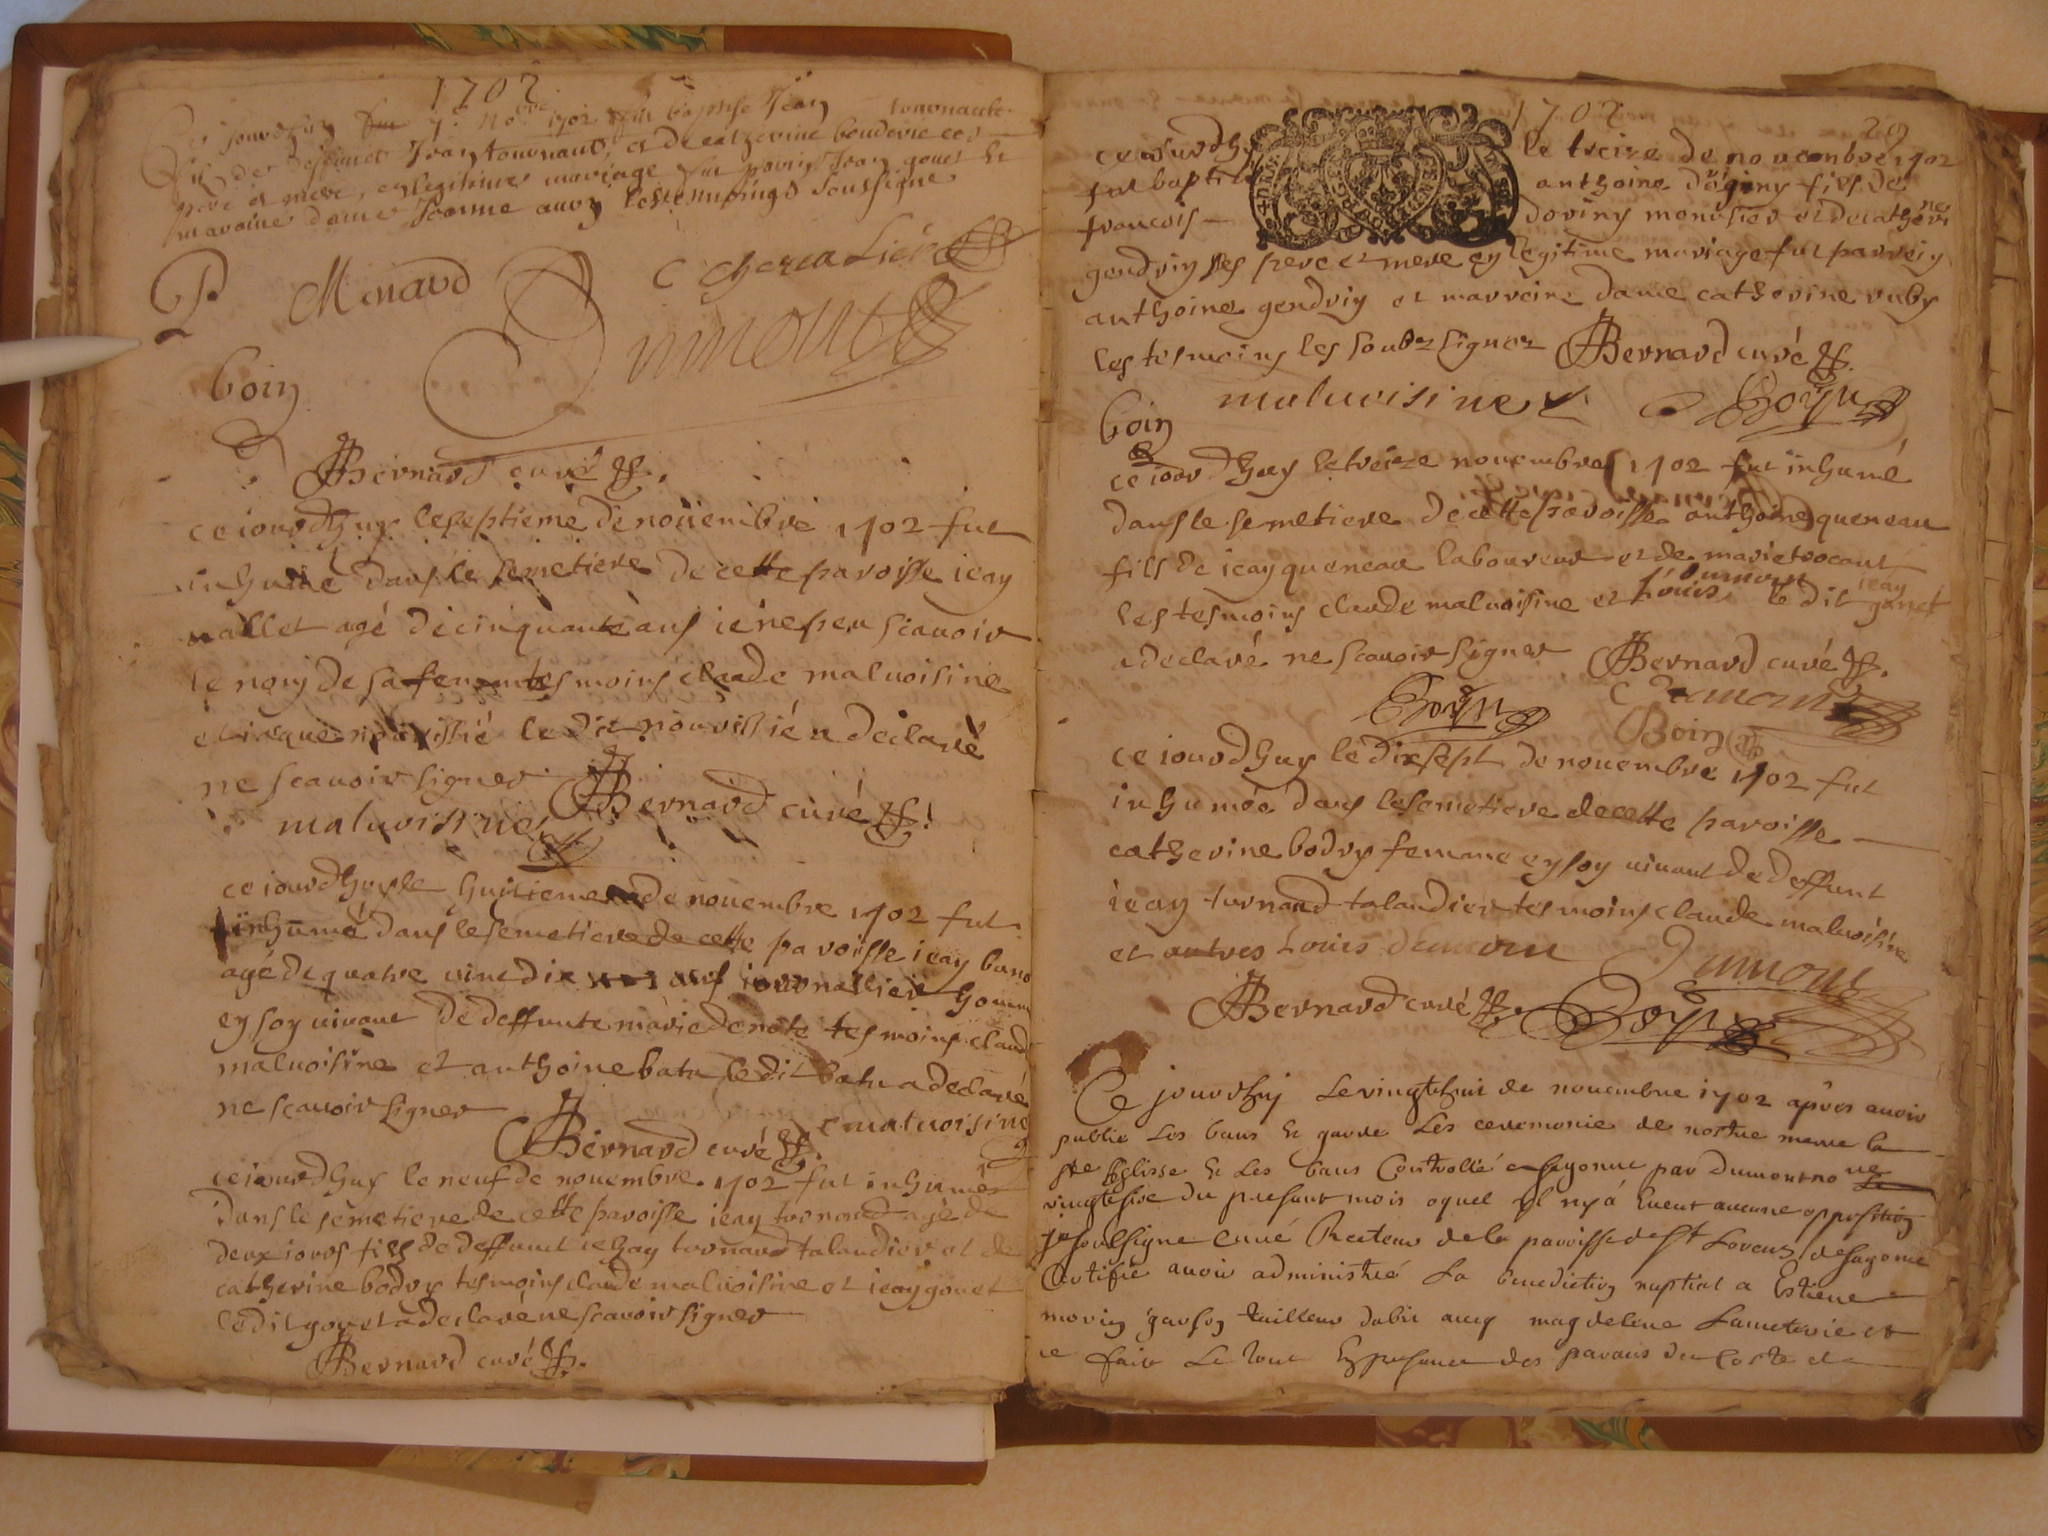 1702
Ce jourdhuy fut 7e. nobvre 1702 fut baptise Jean tournault
fils de deffunct Jean tournault, et de catherine bouderie ces
pere et mere, en legitime mariage fut parin Jean gouet et
maraine dame Jeanne aury les temoings soussigne
P Menard C chevalier
Dumont
boin
Bernard curé
ce iourdhuy le septieme de nouembre 1702 fut
inhumé dans le semetiere de cette paroisse iean
mallet agé de cinquante ans ie ne peu scauoir
le nom de sa femme tesmoins claude maluoisine
et iaque nouissié le dit nouissié a declaré
ne scauoir signer Bernard curé
maluoisine
ce iourdhuy le huitieme de nouembre 1702 fut
inhumé dans le semetiere de cette paroisse iean
agé de quatre vint dix ans iournallier homme
en son uiuant de deffunte marie denote tesmoins claude
maluoisine et anthoine batu le dit batu a declaré
ne scauoir signer c maluoisine
Bernard curé
ce iourdhuy le neuf de nouembre 1702 fut inhumé
dans le semetiere de cette paroisse iean tornaud agé de
deux iours fils de deffunct iehan tornaud talandier et de
catherine bodry tesmoins claude maluoisine et iean gouet
le dit gouet a declaré ne scauoir signer
Bernard curé
1702
20
ce iourdhuy le treize de nouembre 1702
fut baptisé anthoine doriny fils de
francois doriny menusier et de catherine
gendrin ses pere et mere en legitime mariage fut parrein
anthoine gendrin et marreine dame catherine ruby
les tesmoins les soubz signez Bernard curé
maluoisine Boyn
boin
ce iourdhuy le treize nouembre 1702 fut inhumé
dans le semetiere de cette paroisse anthoine queneau
fils de iean queneau laboureur et de marie trocant
les tesmoins claude maluoisine et Louis dumont le dit iean gouet
a declaré ne scauoir signer Bernard curé
Boyn Dumont
Boin
ce iourdhuy le dix sept de nouembre 1702 fut
inhumée dans le semetiere de cette paroisse
catherine bodry femme en son uiuant de deffunt
iean turnaud talandier tesmoins claude maluoisine
et autres Louis dumont Dumont
Bernard curé Boyn
Ce jourdhuy Le vingt huit de nouembre 1702 apres auoir
publié Les bans et garde Les ceremonie de nostre mere la
Ste Eglisse et Les bans Controllé a sagonne par Dumont no
vingt sise du presant mois oquel Il ny á Eueut aucune opposition
je soulsigne curé Recteur de la paroisse de St Lorens de sagonne
Certifie auoir administré La benediction nuptial a Estiene
morin garson tailleur dabit aueq magdelene Lameterie et
ce fait Le tout En presance des parans du Coste de